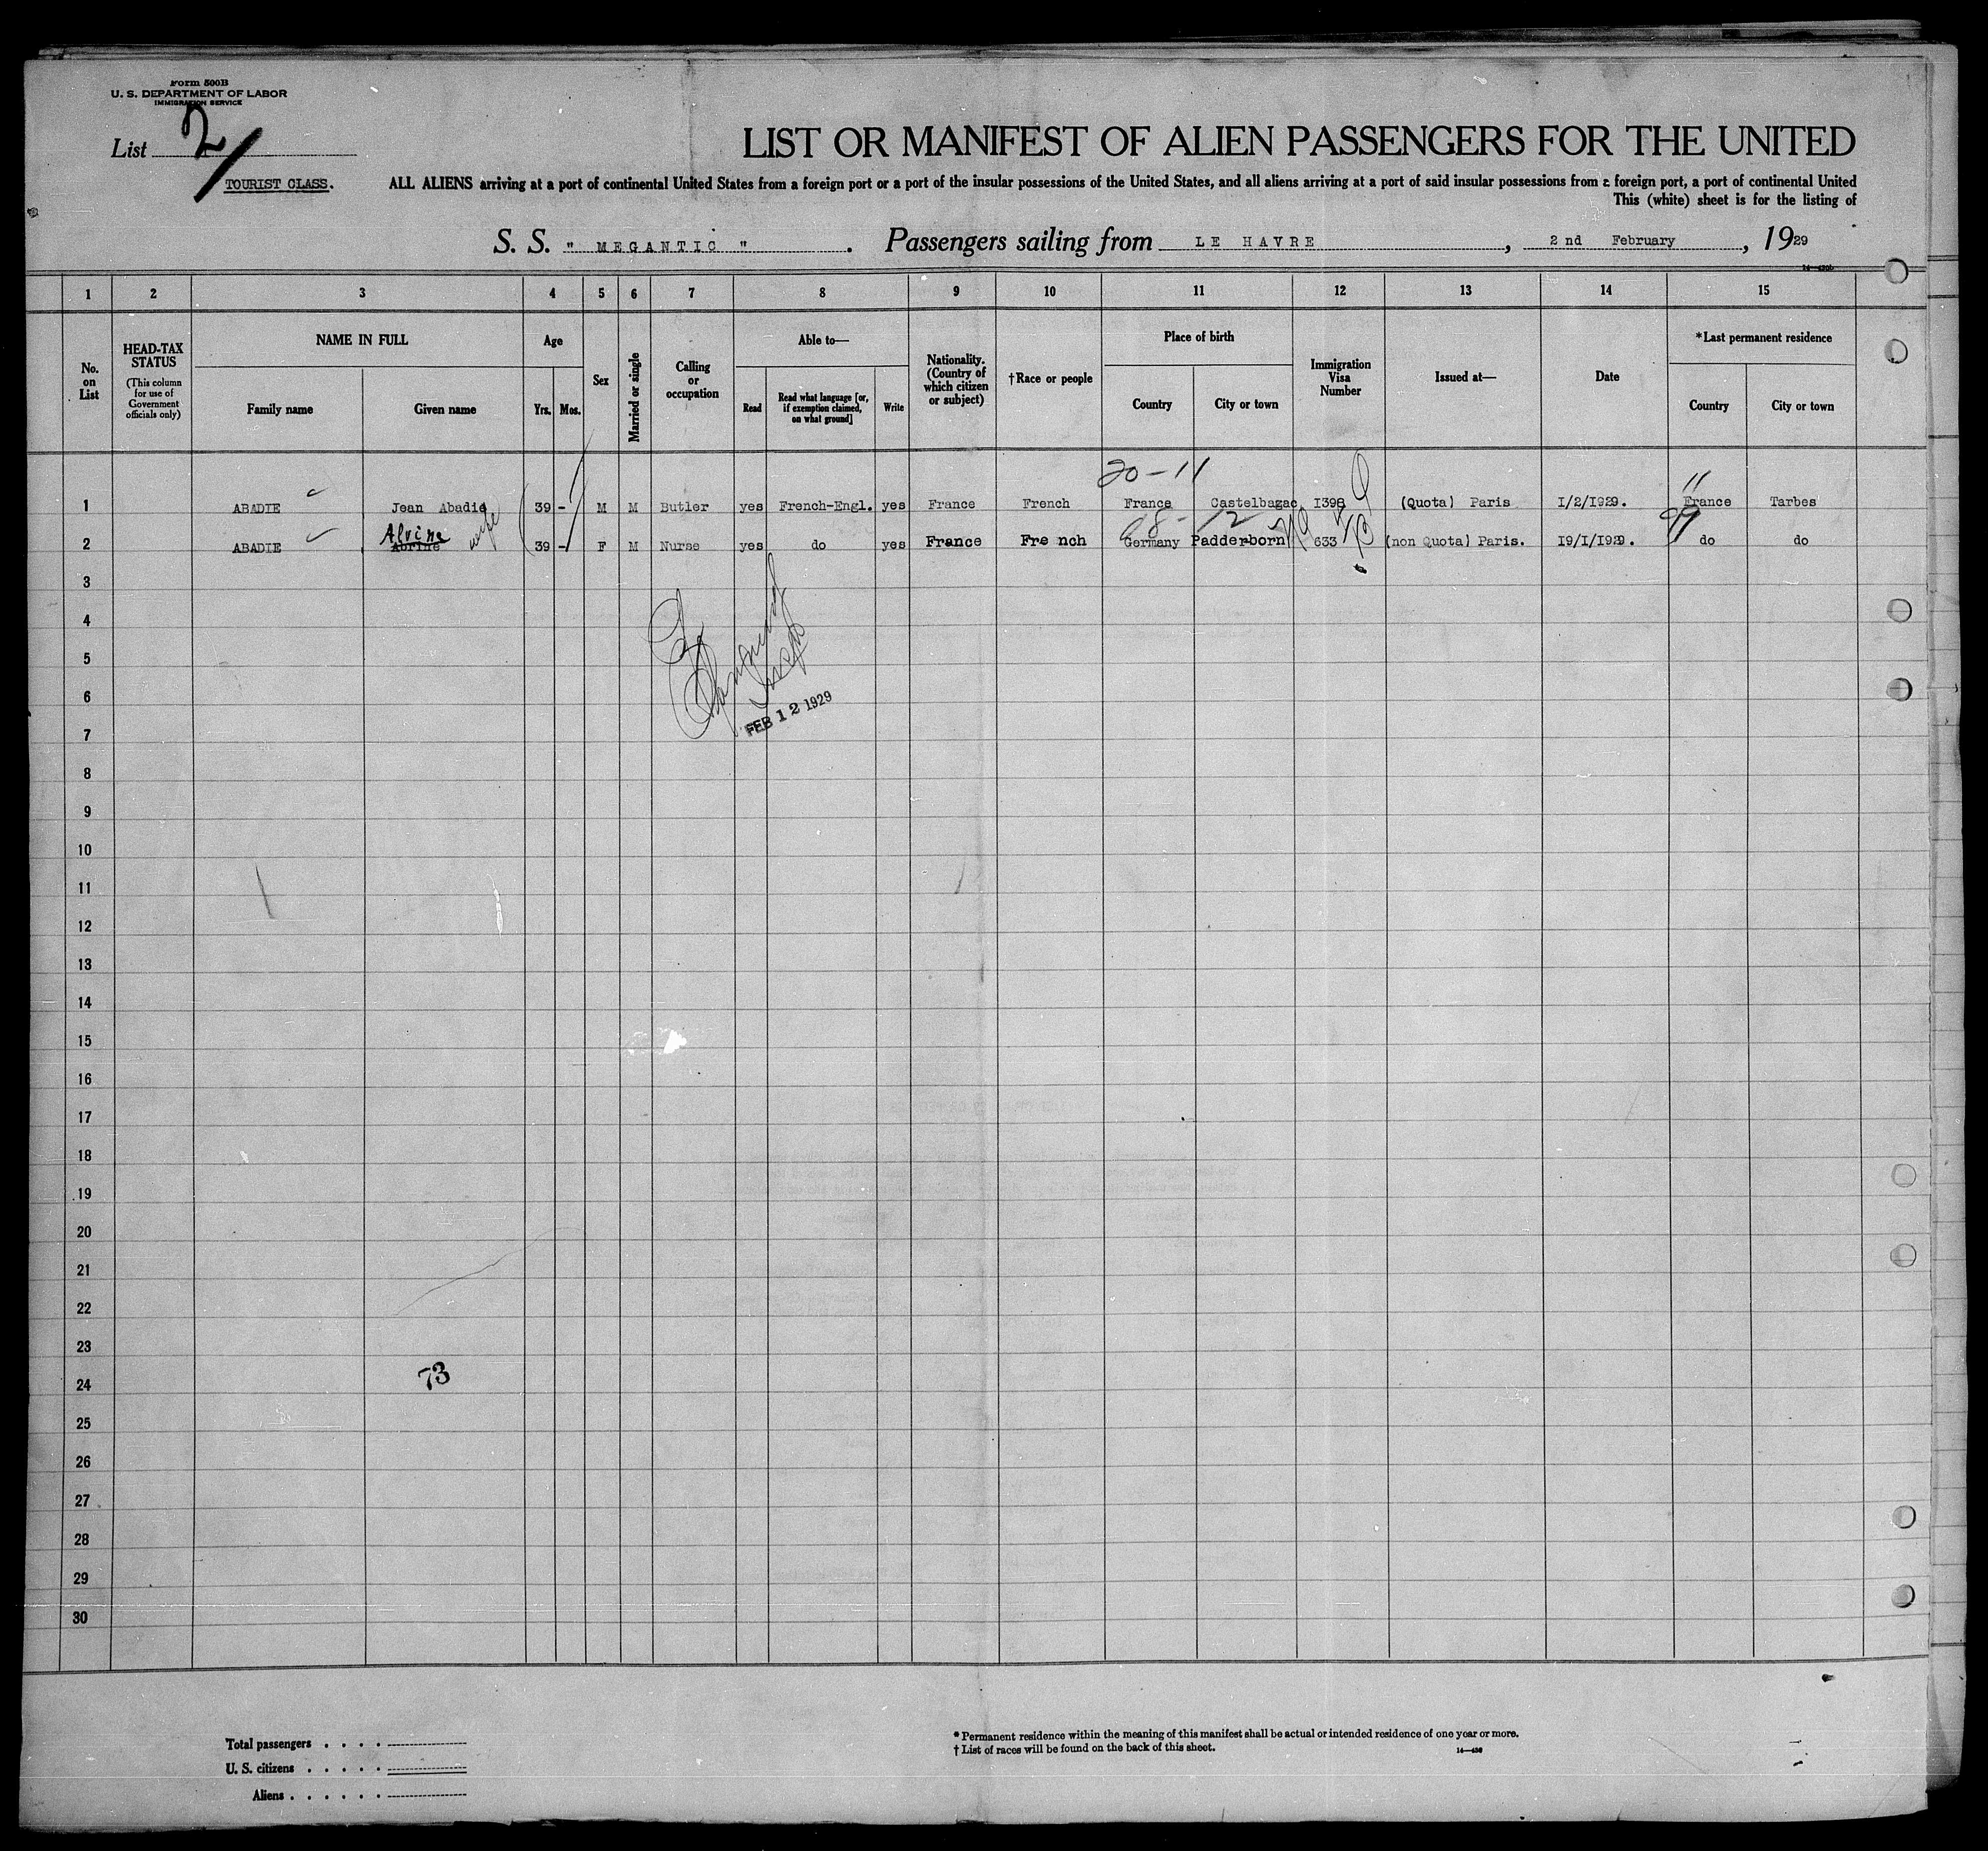 Form 500B
U. S. DEPARTMENT OF LABOR
IMMIGRATION SERVICE
List 2
TOURIST CLASS.
LIST OR MANIFEST OF ALIEN PASSENGERS FOR THE UNITED
ALL ALIENS arriving at a port of continental United States from a foreign port or a port of the insular possessions of the United States, and all aliens arriving at a port of said insular possessions from a foreign port, a port of continental United
This (white) sheet is for the listing of
S. S. " MEGANTIC " . Passengers sailing from LE HAVRE , 2 nd February , 1929
1 2 3 4 5 6 7 8 9 10 11 12 13 14 15
No. on List
HEAD-TAX STATUS
(This column for use of Government officials only)
NAME IN FULL
Family name Given name
Age
Yrs. Mos.
Sex
Married or single
Calling or occupation
Able to—
Read
Read what language [or, if exemption claimed, on what ground]
Write
Nationality. (Country of which citizen or subject)
†Race or people
Place of birth
Country City or town
Immigration Visa Number
Issued at—
Date
*Last permanent residence
Country City or town
20-11 11
1 ABADIE Jean Abadie 39 - M M Butler yes French-Engl. yes France French France Castelbagac I398 (Quota) Paris I/2/I929. France Tarbes
Alvine wife 12
2 ABADIE Abrine 39 - F M Nurse yes do yes France Fre nch Germany Padderborn 633 (non Quota) Paris. I9/I/I929. do do
3
4
5
6
FEB 12 1929
7
8
9
10
11
12
13
14
15
16
17
18
19
20
21
22
23
73
24
25
26
27
28
29
30
Total passengers . . . .
U. S. citizens . . . . .
Aliens . . . . . .
* Permanent residence within the meaning of this manifest shall be actual or intended residence of one year or more.
† List of races will be found on the back of this sheet.